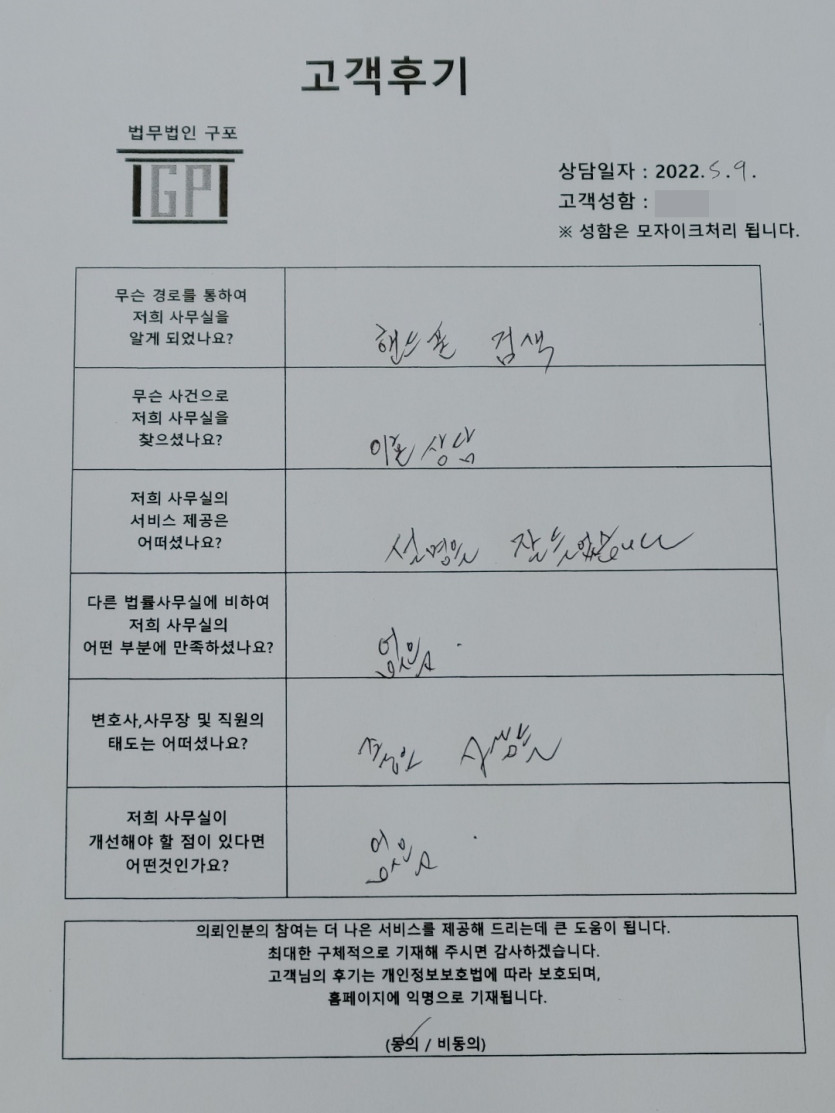 고객후기
법무법인 구포
GP
상담일자 : 2022. 5. 9.
고객성함 :
※ 성함은 모자이크처리 됩니다.
무슨 경로를 통하여
저희 사무실을
알게 되었나요?
핸드폰 검색
무슨 사건으로
저희 사무실을
찾으셨나요?
이혼 상담
저희 사무실의
서비스 제공은
어떠셨나요?
설명을 잘 들었습니다
다른 법률사무실에 비하여
저희 사무실의
어떤 부분에 만족하셨나요?
없음.
변호사,사무장 및 직원의
태도는 어떠셨나요?
저희 사무실이
개선해야 할 점이 있다면
어떤것인가요?
없음.
의뢰인분의 참여는 더 나은 서비스를 제공해 드리는데 큰 도움이 됩니다.
최대한 구체적으로 기재해 주시면 감사하겠습니다.
고객님의 후기는 개인정보보호법에 따라 보호되며,
홈페이지에 익명으로 기재됩니다.
(동의 / 비동의)